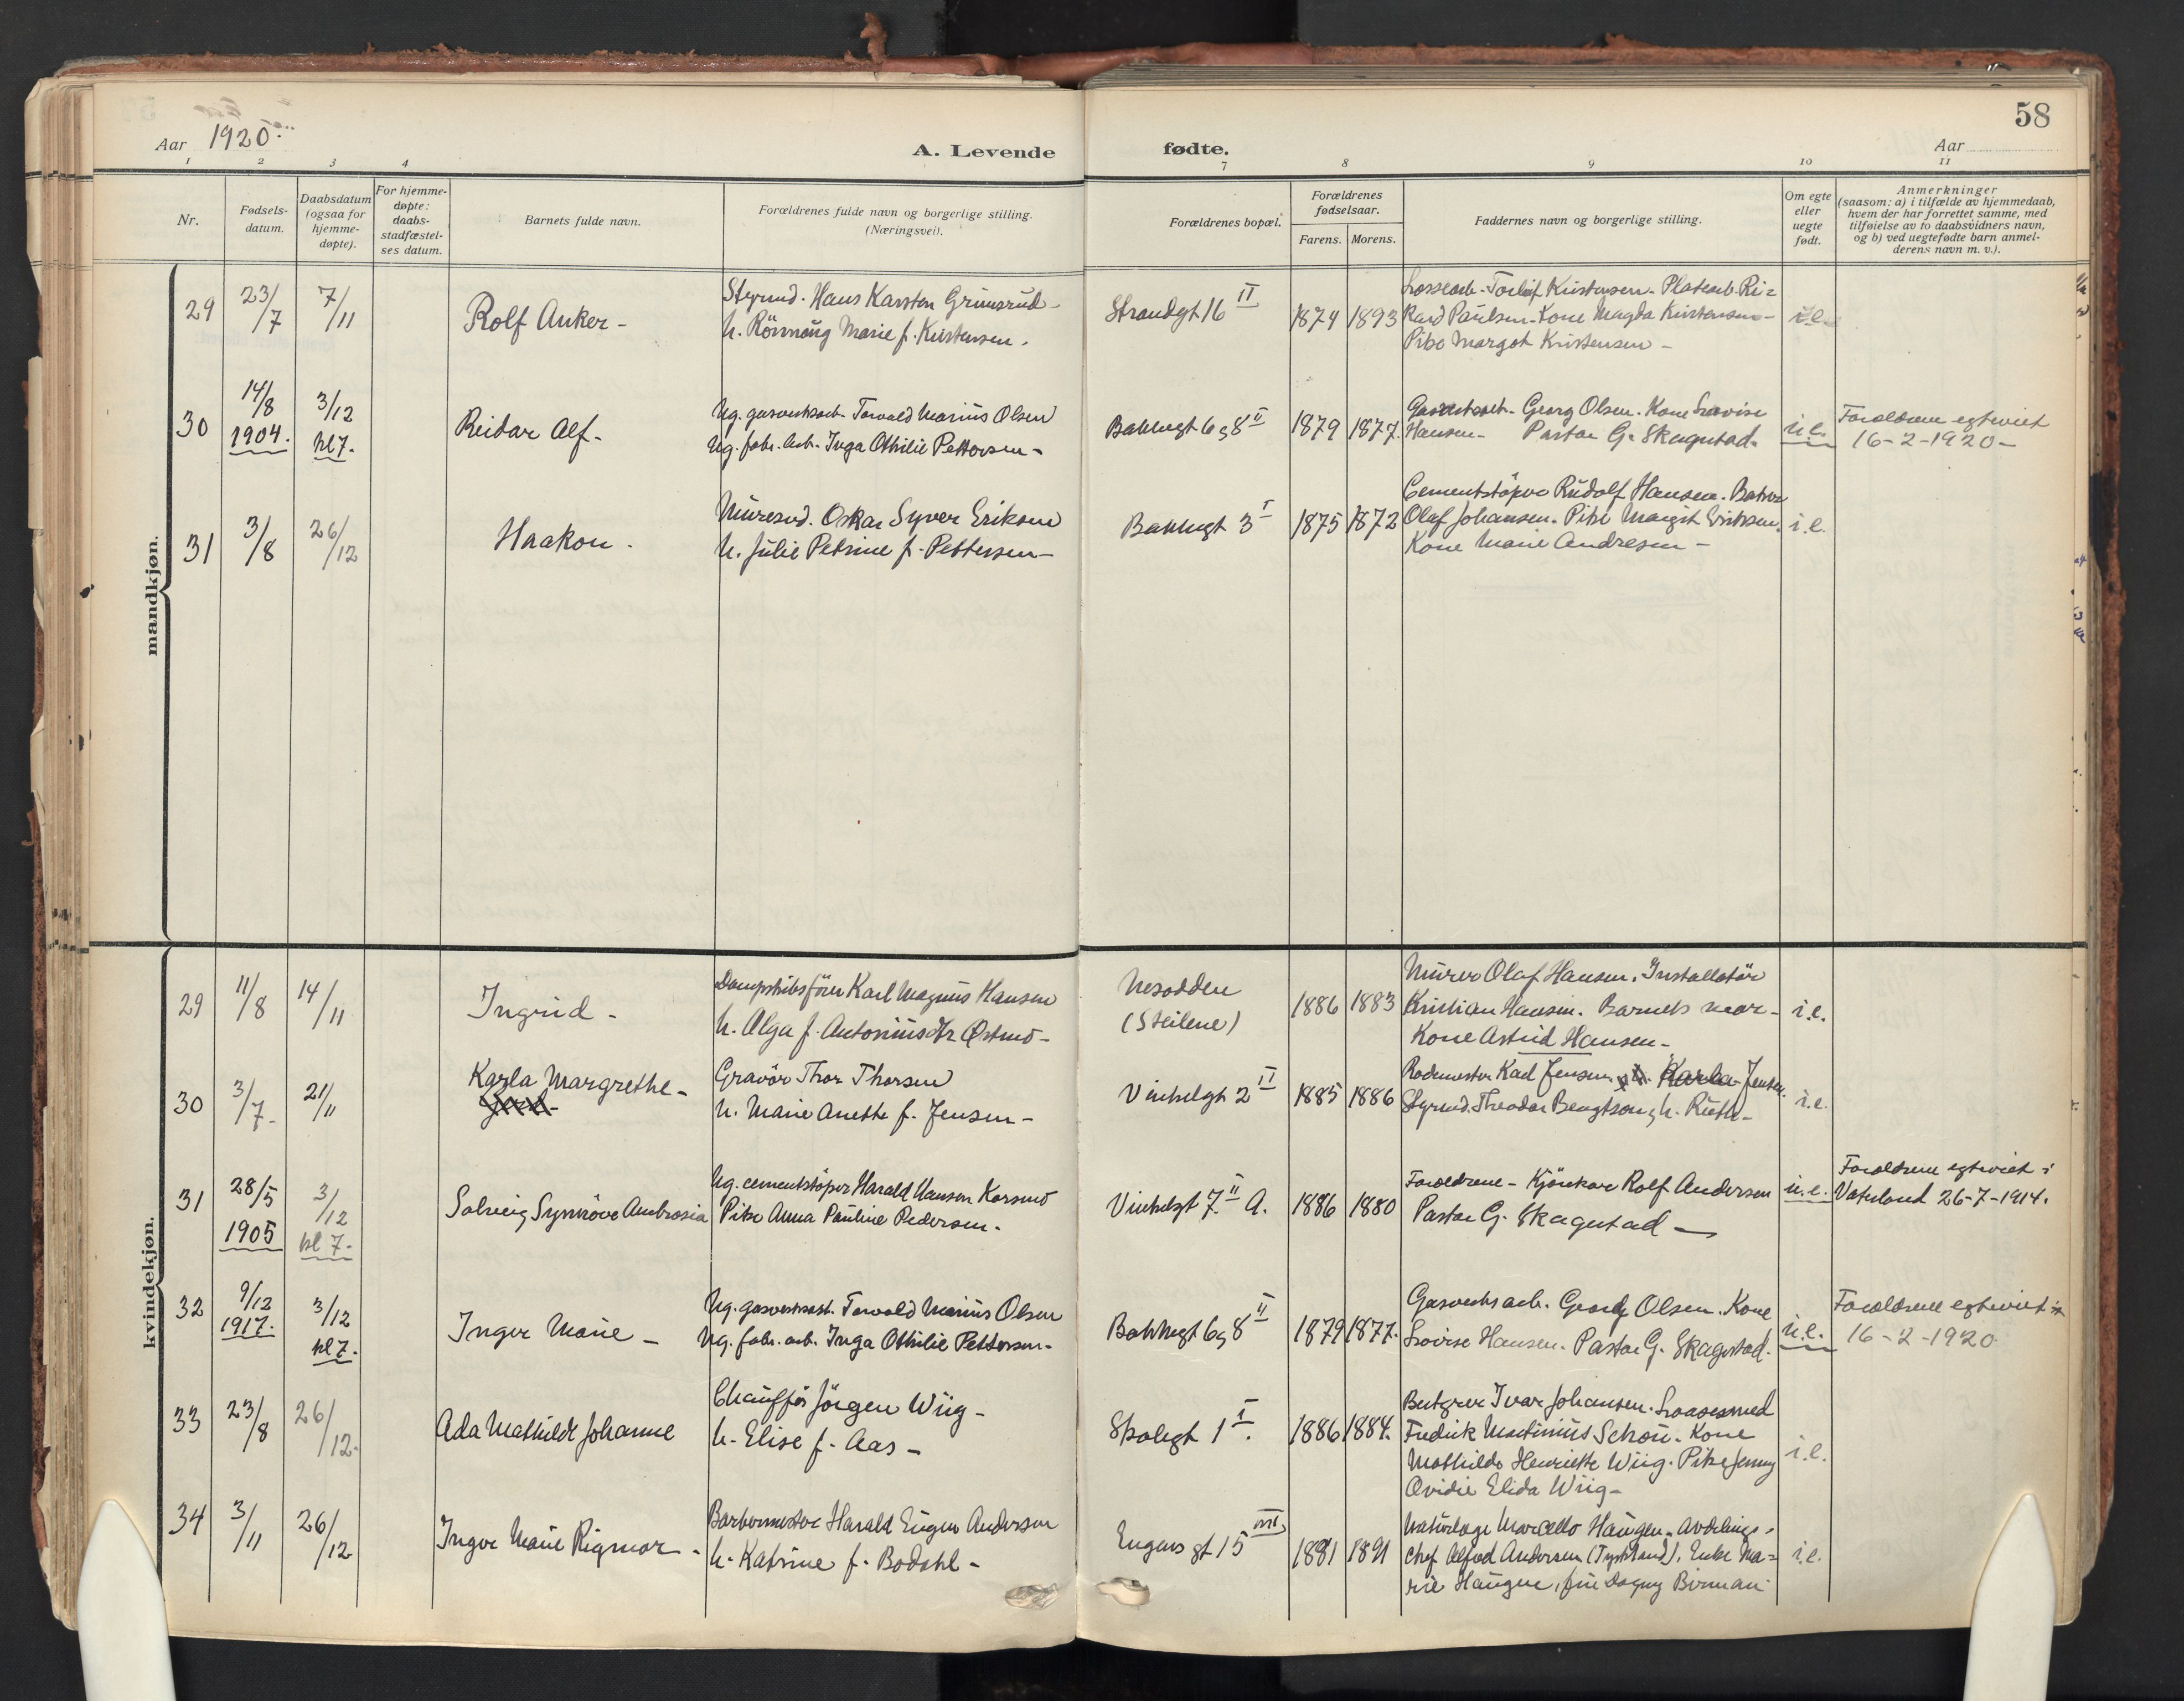 58
Aar 1920.
A. Levende fødte.
Aar
1 2 3 4 7 8 9 10 11
Nr.
Fødsels-
datum.
Daabsdatum
(ogsaa for
hjemme-
døpte).
For hjemme-
døpte:
daabs-
stadfæstel-
ses datum.
Barnets fulde navn.
Forældrenes fulde navn og borgerlige stilling.
(Næringsvei).
Forældrenes bopæl.
Forældrenes
fødselsaar.
Farens. Morens.
Faddernes navn og borgerlige stilling.
Om egte
eller
uegte
født.
Anmerkninger
(saasom: a) i tilfælde av hjemmedaab,
hvem der har forrettet samme, med
tilføielse av to daabsvidners navn,
og b) ved uegtefødte barn anmel-
derens navn m. v.).
mandkjøn.
29 23/7 7/11
Rolf Anker -
Styrmd. Hans Karsten Grimsrud -
h. Rönnaug Marie f. Kristensen.
Strandgt 16 II
1874 1893
Lossearb. Torleif Kristensen - Platearb. Ri=
kard Paulsen - Kone Magda Kristensen -
Pike Margot Kristensen -
i.e.
30 14/8 1904. 3/12 kl 7.
Reidar Alf -
Ug. gasverksarb. Torvald Marius Olsen
Ug. fabr. arb. Inga Othilie Pettersen -
Bakkegt 6 og 8 II
1879 1877.
Gasverksarb. Georg Olsen. Kone Lovise
Hansen - Pastor G. Skagestad.
u.e.
Forældrene egteviet
16-2-1920 -
31 3/8 26/12
Haakon.
Murersvd. Oskar Syver Eriksen
h. Julie Petrine f. Pettersen -
Bakkegt 3 I
1875 1872
Cementstöper Rudolf Hansen. Baker
Olaf Johansen. Pike Margit Eriksen.
Kone Marie Andresen -
i.e.
kvindekjøn.
29 11/8 14/11
Ingrid -
Dampskibsförer Karl Magnus Hansen
h. Olga f. Antoniusdtr Östmo -
Nesodden
(Steilene)
1886 1883
Murer Olaf Hansen. Installatör
Kristian Hansen. Barnets mor -
Kone Astrid Hansen -
i.e.
30 3/7 21/11
Karla Margrethe -
Gravör Thor Thorsen
h. Marie Anette f. Jensen -
Vinkelgt 2 II
1885 1886
Rodemester Karl Jensen, h. Karla Jensen.
Styrmd. Theodor Bengtson, h. Ruth -
i.e.
31 28/5 1905 3/12 kl 7.
Solveig Synnöve Ambrosia
Ug. cementstöper Harald Hansen Korsmo
Pike Anna Pauline Pedersen.
Vinkelgt 7 II A.
1886 1880
Forældrene - Kjörekar Rolf Andersen
Pastor G. Skagestad -
u.e.
Forældrene egteviet i
Vaterland 26-7-1914.
32 9/12 1917. 3/12 kl 7.
Inger Marie -
Ug. gasverksarb. Torvald Marius Olsen
Ug. fabr. arb. Inga Othilie Pettersen -
Bakkegt 6 og 8 II
1879 1877.
Gasverksarb. Georg Olsen. Kone
Lovise Hansen. Pastor G. Skagestad.
u.e.
Forældrene egteviet
16-2-1920.
33 23/8 26/12.
Ada Mathilde Johanne
Chaufför Jörgen Wiig -
h. Elise f. Aas -
Skolegt 1 I.
1886 1884.
Ivar Johansen. Laasesmed
Fredrik Martinius Schou. Kone
Mathilde Henriette Wiig. Pike Jenny
Ovidie Elida Wiig -
i.e.
34 3/11 26/12
Inger Marie Rigmor -
Barbermester Harald Eugen Andersen
h. Katrine f. Bodahl -
Engens gt 15
1881 1891
Naturlæge Marcello Haugen. Avdelings-
chef Alfred Andersen (Tyskland). Enke Ma=
rie Haugen, frue Dagny Birman
i.e.